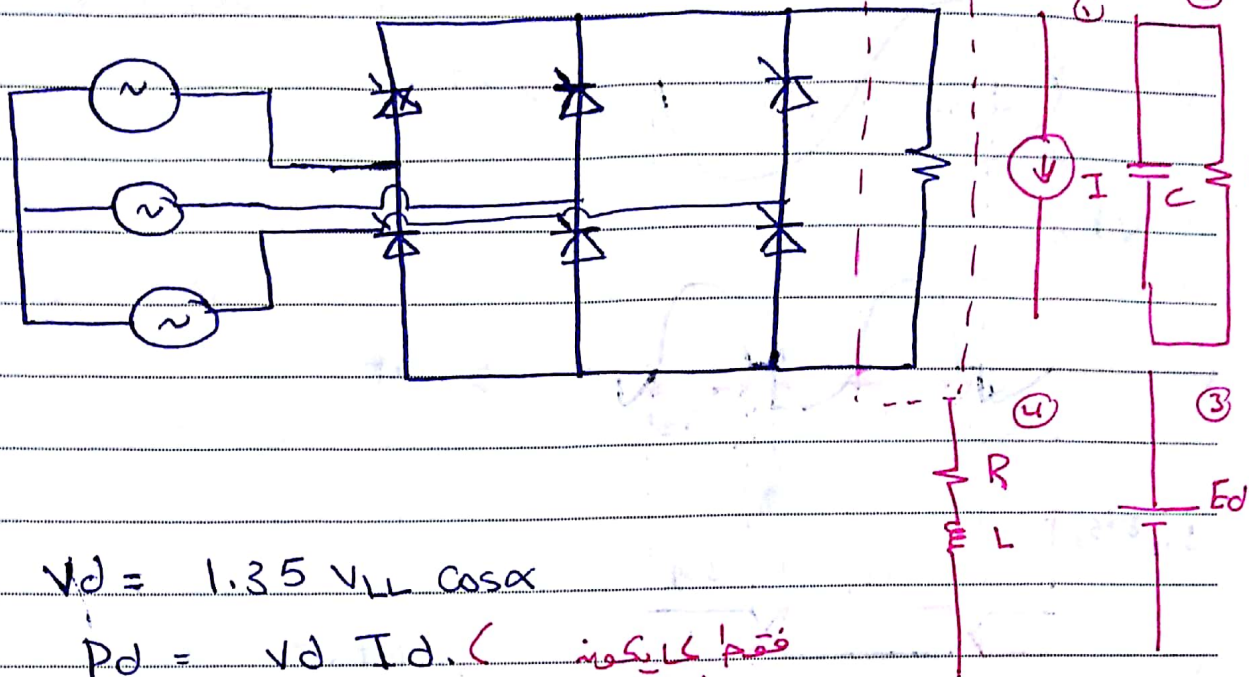 ①
I
C
④
③
R
Ed
L
Vd = 1.35 VLL cosα
Pd = Vd Id. ( فقط لما يكون